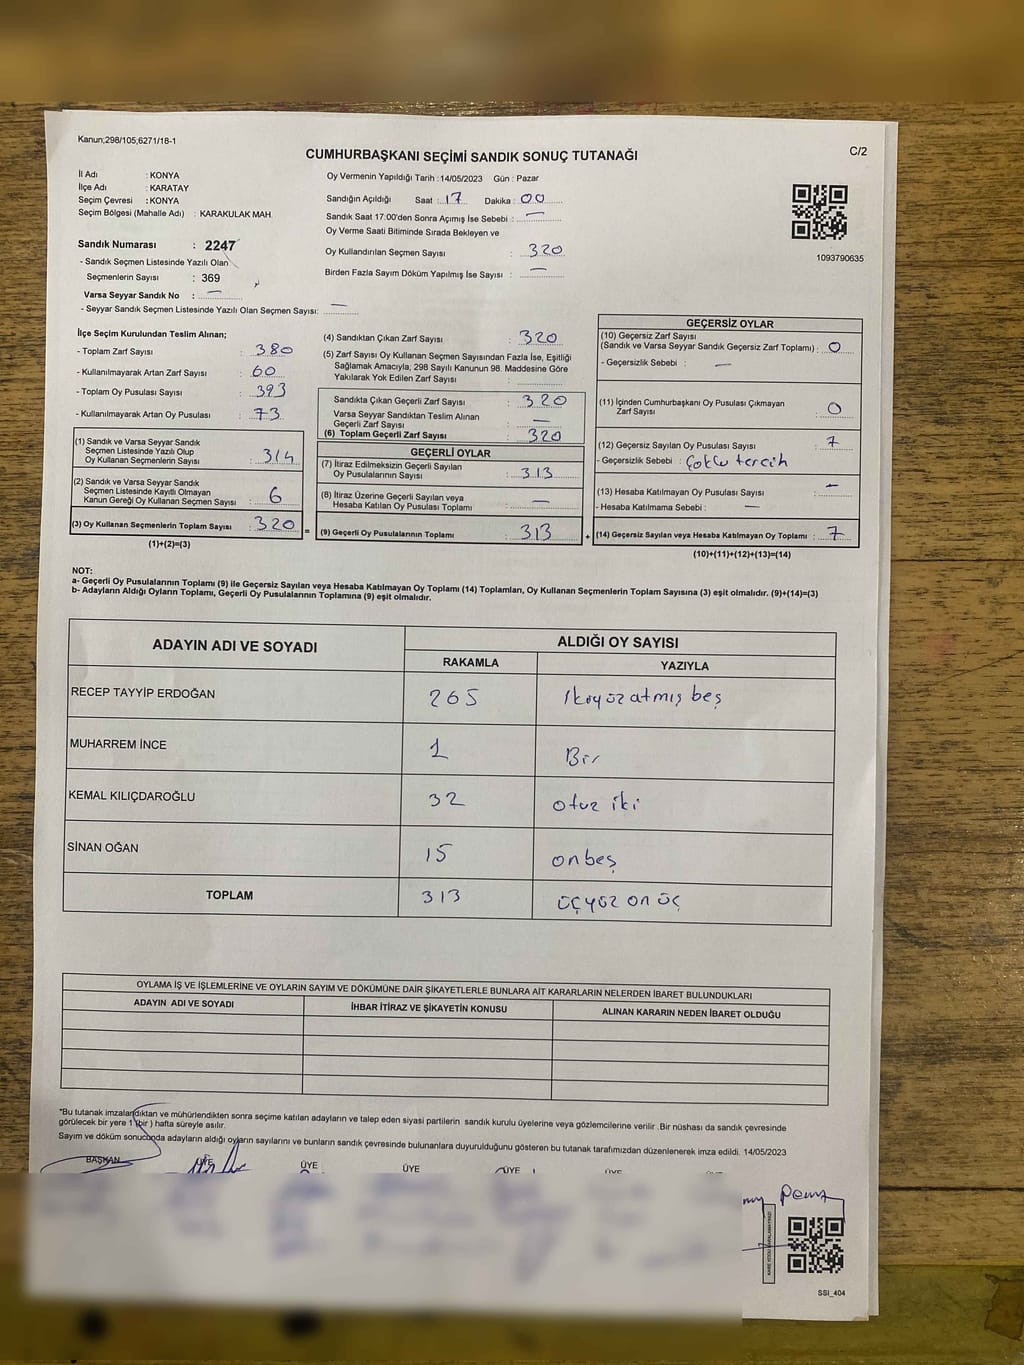 Kanun;298/105;6271/16-1
C/2
CUMHURBAŞKANI SEÇİMİ SANDIK SONUÇ TUTANAĞI
İl Adı : KONYA
İlçe Adı : KARATAY
Seçim Çevresi : KONYA
Seçim Bölgesi (Mahalle Adı) : KARAKULAK MAH.
Sandık Numarası : 2247
- Sandık Seçmen Listesinde Yazılı Olan
Seçmenlerin Sayısı : 369
Varsa Seyyar Sandık No : —
- Seyyar Sandık Seçmen Listesinde Yazılı Olan Seçmen Sayısı: —
Oy Vermenin Yapıldığı Tarih : 14/05/2023 Gün : Pazar
Sandığın Açıldığı Saat : 17 Dakika : 00
Sandık Saat 17:00'den Sonra Açımış İse Sebebi : —
Oy Verme Saati Bitiminde Sırada Bekleyen ve
Oy Kullandırılan Seçmen Sayısı : 320
Birden Fazla Sayım Döküm Yapılmış İse Sayısı : —
1093790635
İlçe Seçim Kurulundan Teslim Alınan;
- Toplam Zarf Sayısı : 380
- Kullanılmayarak Artan Zarf Sayısı : 60
- Toplam Oy Pusulası Sayısı : 393
- Kullanılmayarak Artan Oy Pusulası : 73
(1) Sandık ve Varsa Seyyar Sandık
Seçmen Listesinde Yazılı Olup
Oy Kullanan Seçmenlerin Sayısı : 314
(2) Sandık ve Varsa Seyyar Sandık
Seçmen Listesinde Kayıtlı Olmayan
Kanun Gereği Oy Kullanan Seçmen Sayısı : 6
(3) Oy Kullanan Seçmenlerin Toplam Sayısı : 320 =
(1)+(2)=(3)
(4) Sandıktan Çıkan Zarf Sayısı : 320
(5) Zarf Sayısı Oy Kullanan Seçmen Sayısından Fazla İse, Eşitliği
Sağlamak Amacıyla; 298 Sayılı Kanunun 98. Maddesine Göre
Yakılarak Yok Edilen Zarf Sayısı :
Sandıkta Çıkan Geçerli Zarf Sayısı : 320
Varsa Seyyar Sandıktan Teslim Alınan
Geçerli Zarf Sayısı : —
(6) Toplam Geçerli Zarf Sayısı : 320
GEÇERLİ OYLAR
(7) İtiraz Edilmeksizin Geçerli Sayılan
Oy Pusulalarının Sayısı : 313
(8) İtiraz Üzerine Geçerli Sayılan veya
Hesaba Katılan Oy Pusulası Toplamı : —
(9) Geçerli Oy Pusulalarının Toplamı : 313 +
GEÇERSİZ OYLAR
(10) Geçersiz Zarf Sayısı
(Sandık ve Varsa Seyyar Sandık Geçersiz Zarf Toplamı) : 0
- Geçersizlik Sebebi : —
(11) İçinden Cumhurbaşkanı Oy Pusulası Çıkmayan
Zarf Sayısı : 0
(12) Geçersiz Sayılan Oy Pusulası Sayısı : 7
- Geçersizlik Sebebi : Çoklu tercih
(13) Hesaba Katılmayan Oy Pusulası Sayısı : —
- Hesaba Katılmama Sebebi : —
(14) Geçersiz Sayılan veya Hesaba Katılmayan Oy Toplamı : 7
(10)+(11)+(12)+(13)=(14)
NOT:
a- Geçerli Oy Pusulalarının Toplamı (9) ile Geçersiz Sayılan veya Hesaba Katılmayan Oy Toplamı (14) Toplamları, Oy Kullanan Seçmenlerin Toplam Sayısına (3) eşit olmalıdır. (9)+(14)=(3)
b- Adayların Aldığı Oyların Toplamı, Geçerli Oy Pusulalarının Toplamına (9) eşit olmalıdır.
ADAYIN ADI VE SOYADI ALDIĞI OY SAYISI
RAKAMLA YAZIYLA
RECEP TAYYİP ERDOĞAN 265 İkiyüz atmış beş
MUHARREM İNCE 1 Bir
KEMAL KILIÇDAROĞLU 32 otuz iki
SİNAN OĞAN 15 onbeş
TOPLAM 313 üçyüz on üç
OYLAMA İŞ VE İŞLEMLERİNE VE OYLARIN SAYIM VE DÖKÜMÜNE DAİR ŞİKAYETLERLE BUNLARA AİT KARARLARIN NELERDEN İBARET BULUNDUKLARI
ADAYIN ADI VE SOYADI İHBAR İTİRAZ VE ŞİKAYETİN KONUSU ALINAN KARARIN NEDEN İBARET OLDUĞU
*Bu tutanak imzalandıktan ve mühürlendikten sonra seçime katılan adayların ve talep eden siyasi partilerin sandık kurulu üyelerine veya gözlemcilerine verilir .Bir nüshası da sandık çevresinde
görülecek bir yere 1 (bir ) hafta süreyle asılır.
Sayım ve döküm sonucunda adayların aldığı oyların sayılarını ve bunların sandık çevresinde bulunanlara duyurulduğunu gösteren bu tutanak tarafımızdan düzenlenerek imza edildi. 14/05/2023
BAŞKAN ÜYE ÜYE ÜYE ÜYE ÜYE
SSI_404